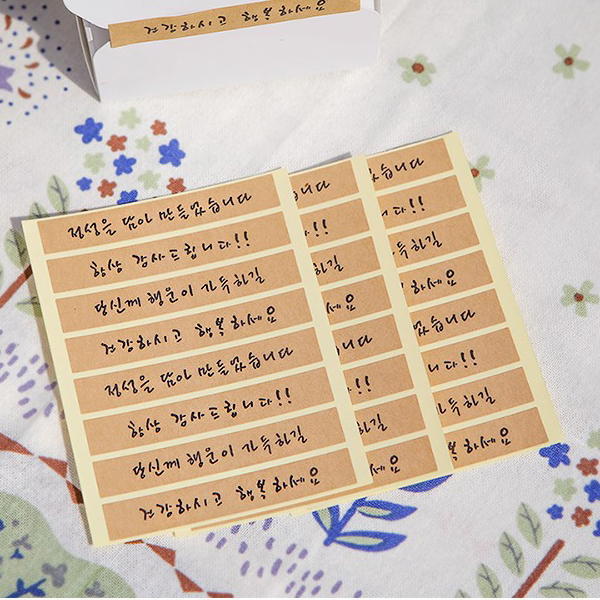 건강하시고 행복하세요
정성을 담아 만들었습니다
항상 감사드립니다!!
당신께 행운이 가득하길
건강하시고 행복하세요
정성을 담아 만들었습니다
항상 감사드립니다!!
당신께 행운이 가득하길
건강하시고 행복하세요
습니다
!!
하길
세요
었습니다
니다!!
하길
세요
습니다
니다!!
득하길
하세요
었습니다
니다!!
가득하길
복하세요